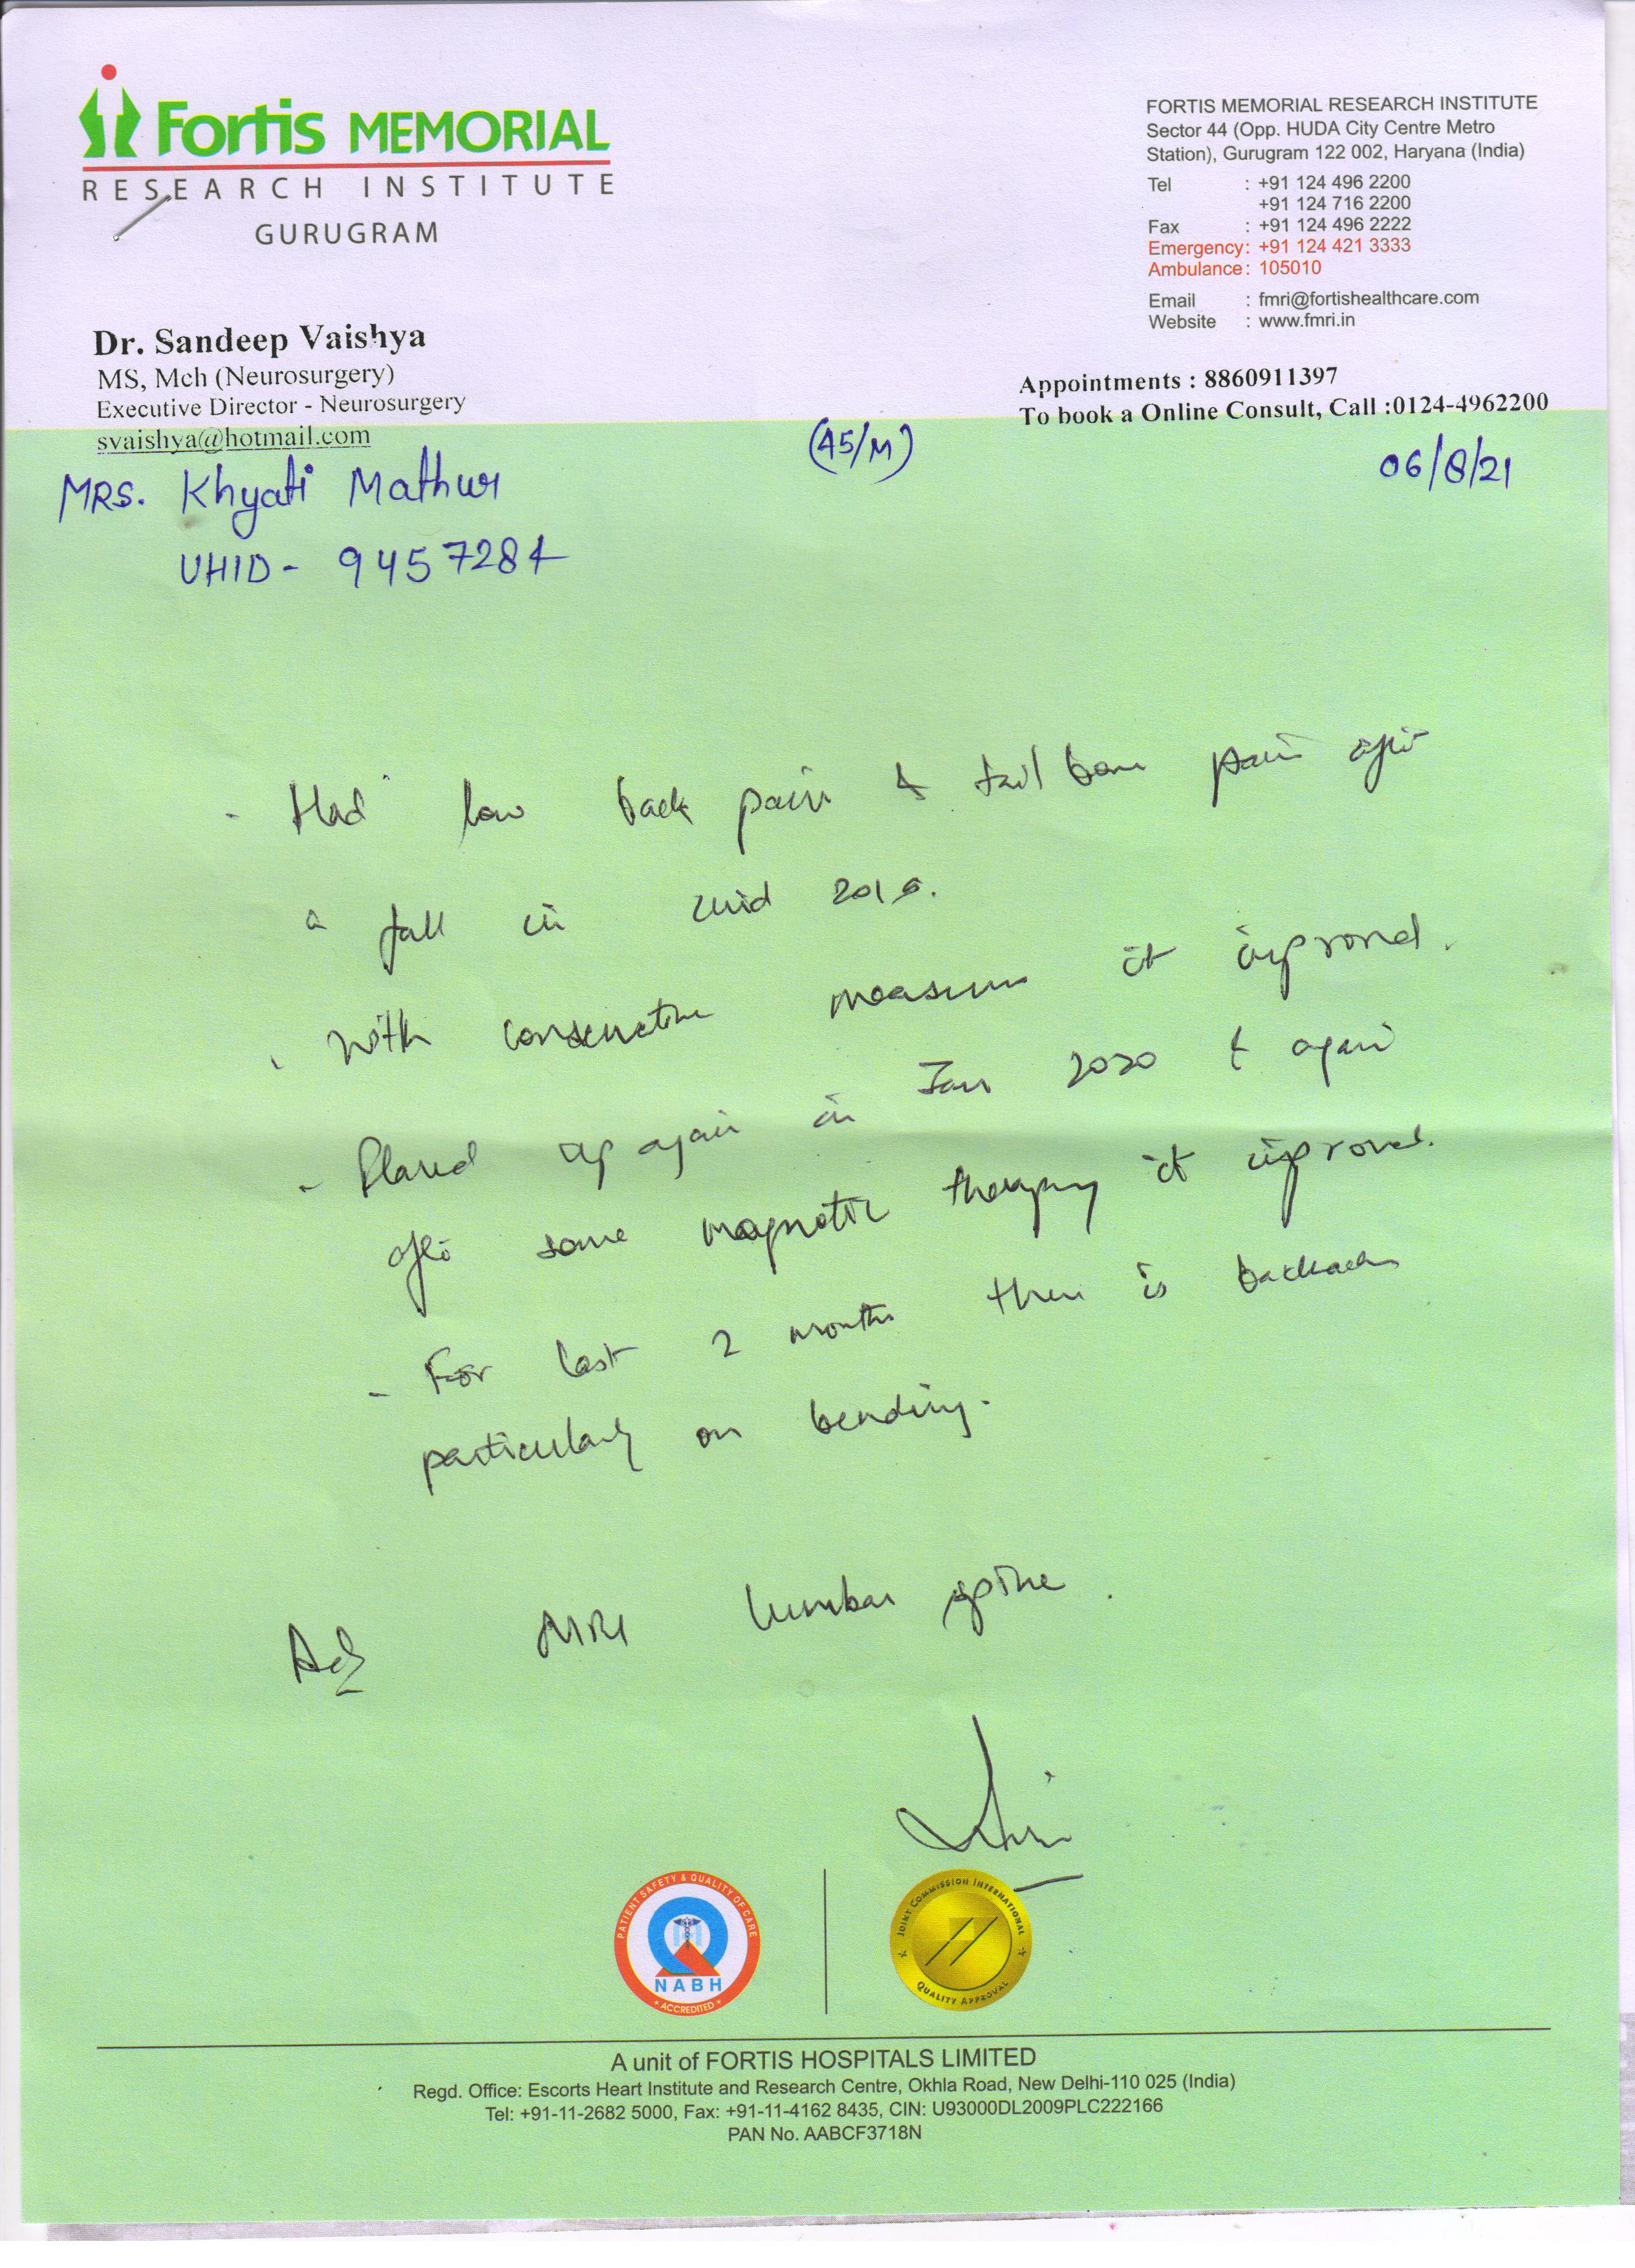 Fortis MEMORIAL
RESEARCH INSTITUTE
GURUGRAM
FORTIS MEMORIAL RESEARCH INSTITUTE
Sector 44 (Opp. HUDA City Centre Metro
Station), Gurugram 122 002, Haryana (India)
Tel : +91 124 496 2200
+91 124 716 2200
Fax : +91 124 496 2222
Emergency: +91 124 421 3333
Ambulance: 105010
Email : fmri@fortishealthcare.com
Website : www.fmri.in
Dr. Sandeep Vaishya
MS, Mch (Neurosurgery)
Executive Director - Neurosurgery
svaishya@hotmail.com
Appointments : 8860911397
To book a Online Consult, Call :0124-4962200
MRS. Khyati Mathur
(45/M)
06/8/21
UHID - 9457284
- Had low back pain & tail bone pain after
a fall in mid
- With conservative measures it improved.
- Flared up again in Jan 2020 & again
after some magnetic therapy it improved.
- For last 2 months there is backache
particularly on bending.
Adv MRI lumbar spine.
PATIENT SAFETY & QUALITY OF CARE
NABH
ACCREDITED
JOINT COMMISSION INTERNATIONAL
QUALITY APPROVAL
A unit of FORTIS HOSPITALS LIMITED
Regd. Office: Escorts Heart Institute and Research Centre, Okhla Road, New Delhi-110 025 (India)
Tel: +91-11-2682 5000, Fax: +91-11-4162 8435, CIN: U93000DL2009PLC222166
PAN No. AABCF3718N